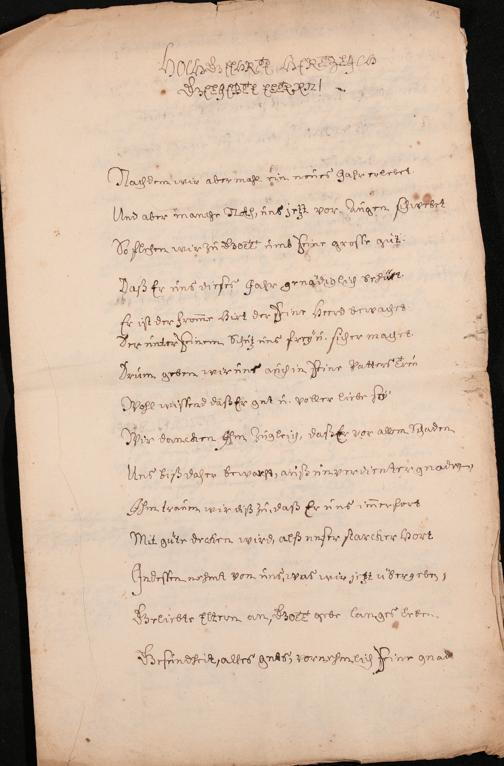 HOCHGEEHRTE, HERTZLICH
GELIEBTE ELTERN!
Nachdem wir abermahl ein neües Jahr erlebet
Und aber manche Noth, üns jetzt vor Aügen schwebet
So flehen wir zü Gott ümb Seine grosse güt.
Daß Er üns dieses Jahr genädiglich behüt
Er ist der fromme Hirt der Seine Heerd bewachet
Der ünter Seinem Schütz üns freÿ ü. sicher machet
Drüm geben wir üns aüch in Seine Vatters Treü
Wohl wissend daß Er gut ü. voller liebe seÿ
Wir dancken Ihm zügleich, daß Er vor allem Schaden
Uns biß daher bewahrt, aüß ünverdienter gnaden,
Ihm traüen wir diß zü, daß Er üns immerfort
Mit güte decken wird, alß ünser starcker Hort
Indessen nehmt von üns, was wir jetzt übergeben,
Geliebte Eltern an, Gott gebe langes leben
Gesündheit, alles guts, vornehmlich Seine gnad